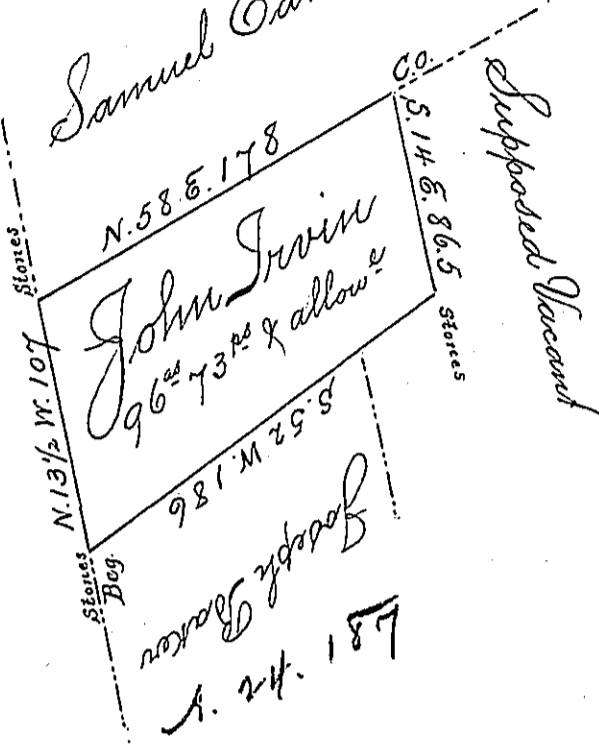 Samuel
C.O.
Supposed Vacant
N. 58. E. 178
S. 14 E. 86.5
Stones
John Irvin
96as 73ps & allowe
Stones
N. 13 1/2 W. 107
S. 52 W. 186
Stones
Beg.
Joseph Baker
187